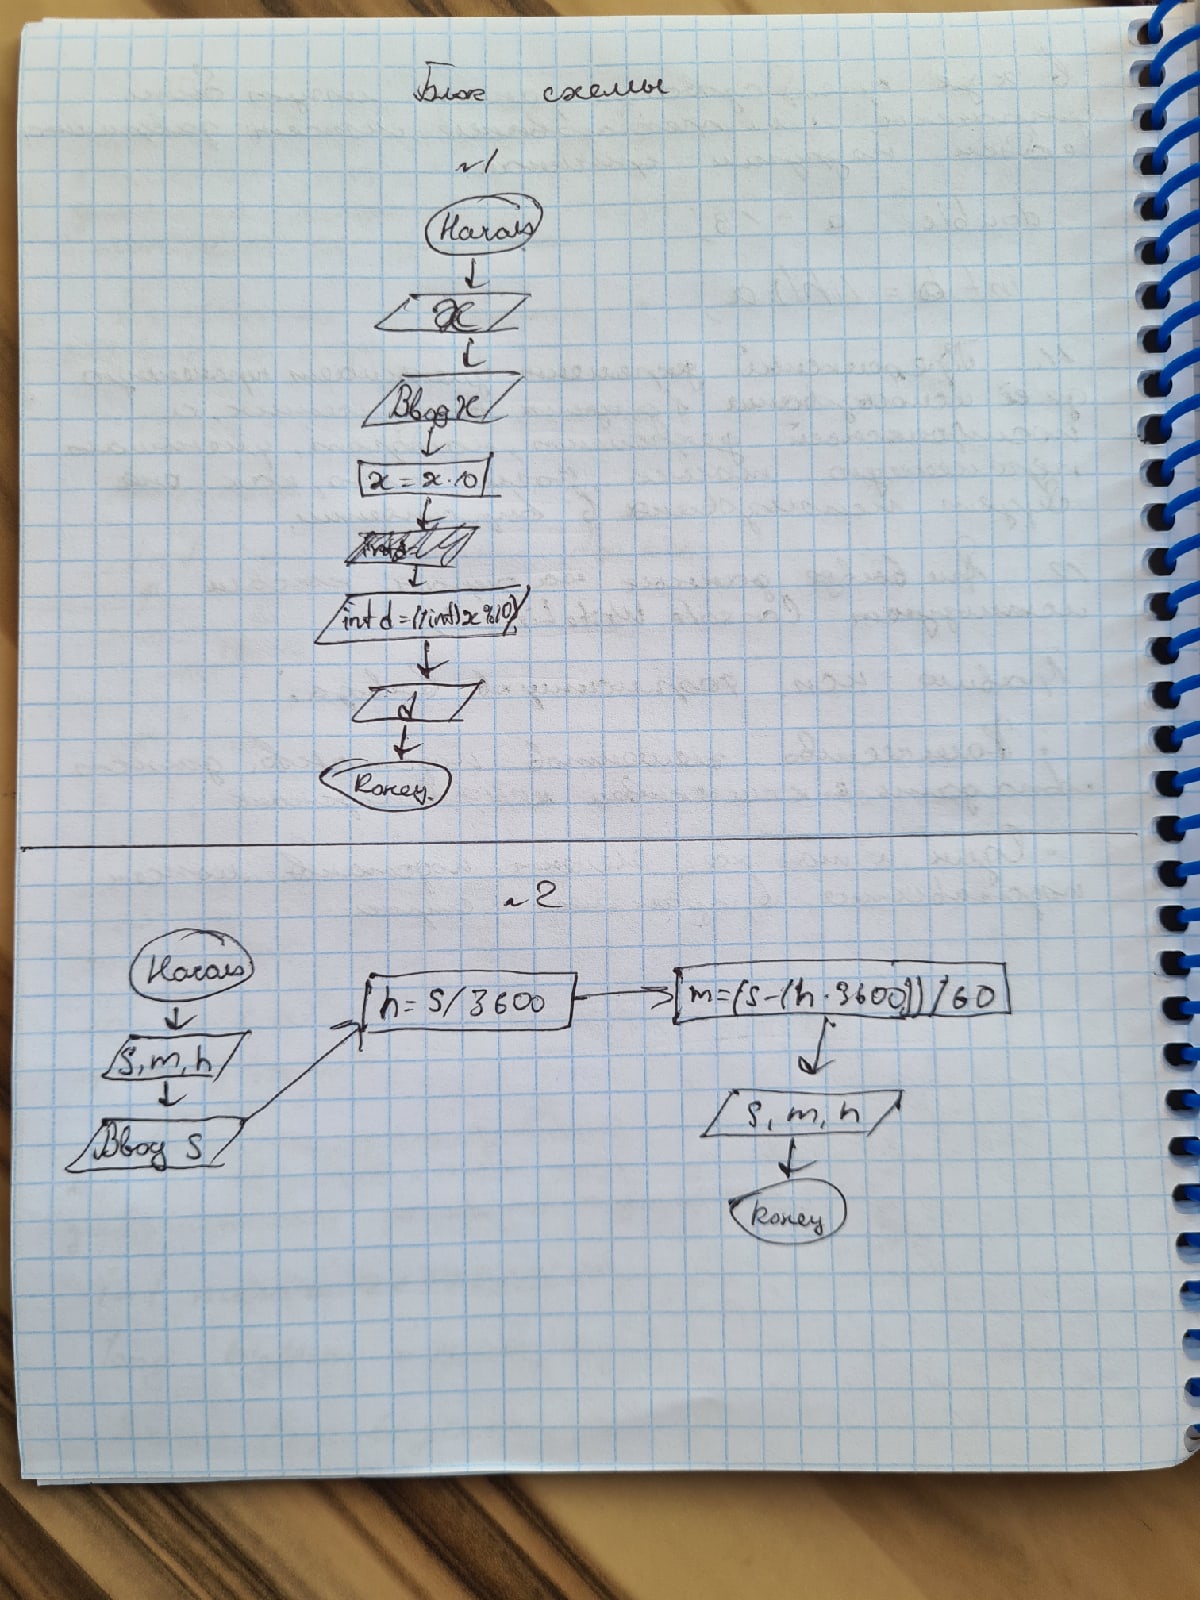 Блок схемы
№1
Начало
x
Ввод x
x = x · 10
int d = ((int)x%10)
d
Конец
№2
Начало
S, m, h
Ввод S
h = S/3600
m=(S-(h·3600))/60
S, m, h
Конец